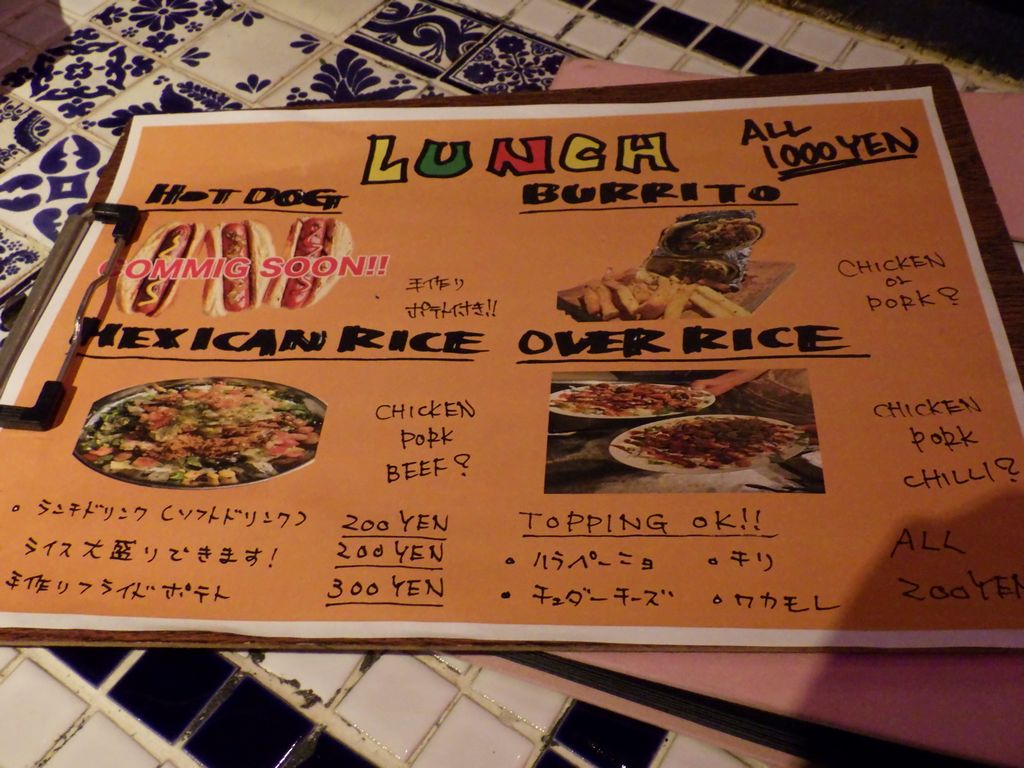 LUNCH
ALL
1000YEN
HOT DOG
COMMIG SOON!!
手作り
ポテト付き!!
BURRITO
CHICKEN
or
PORK?
MEXICAN RICE
CHICKEN
PORK
BEEF?
OVER RICE
CHICKEN
PORK
CHILLI?
• ランチドリンク (ソフトドリンク) 200 YEN
ライス大盛りできます! 200 YEN
手作りフライドポテト 300 YEN
TOPPING OK!!
• ハラペーニョ • チリ
• チェダーチーズ • ワカモレ
ALL
200YEN